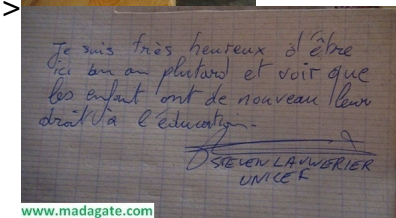 >
Je suis très heureux d'être
ici un an plutard et voir que
les enfant ont de nouveau leur
droit à l'éducation.
STEVEN LAUWERIER
UNICEF
www.madagate.com